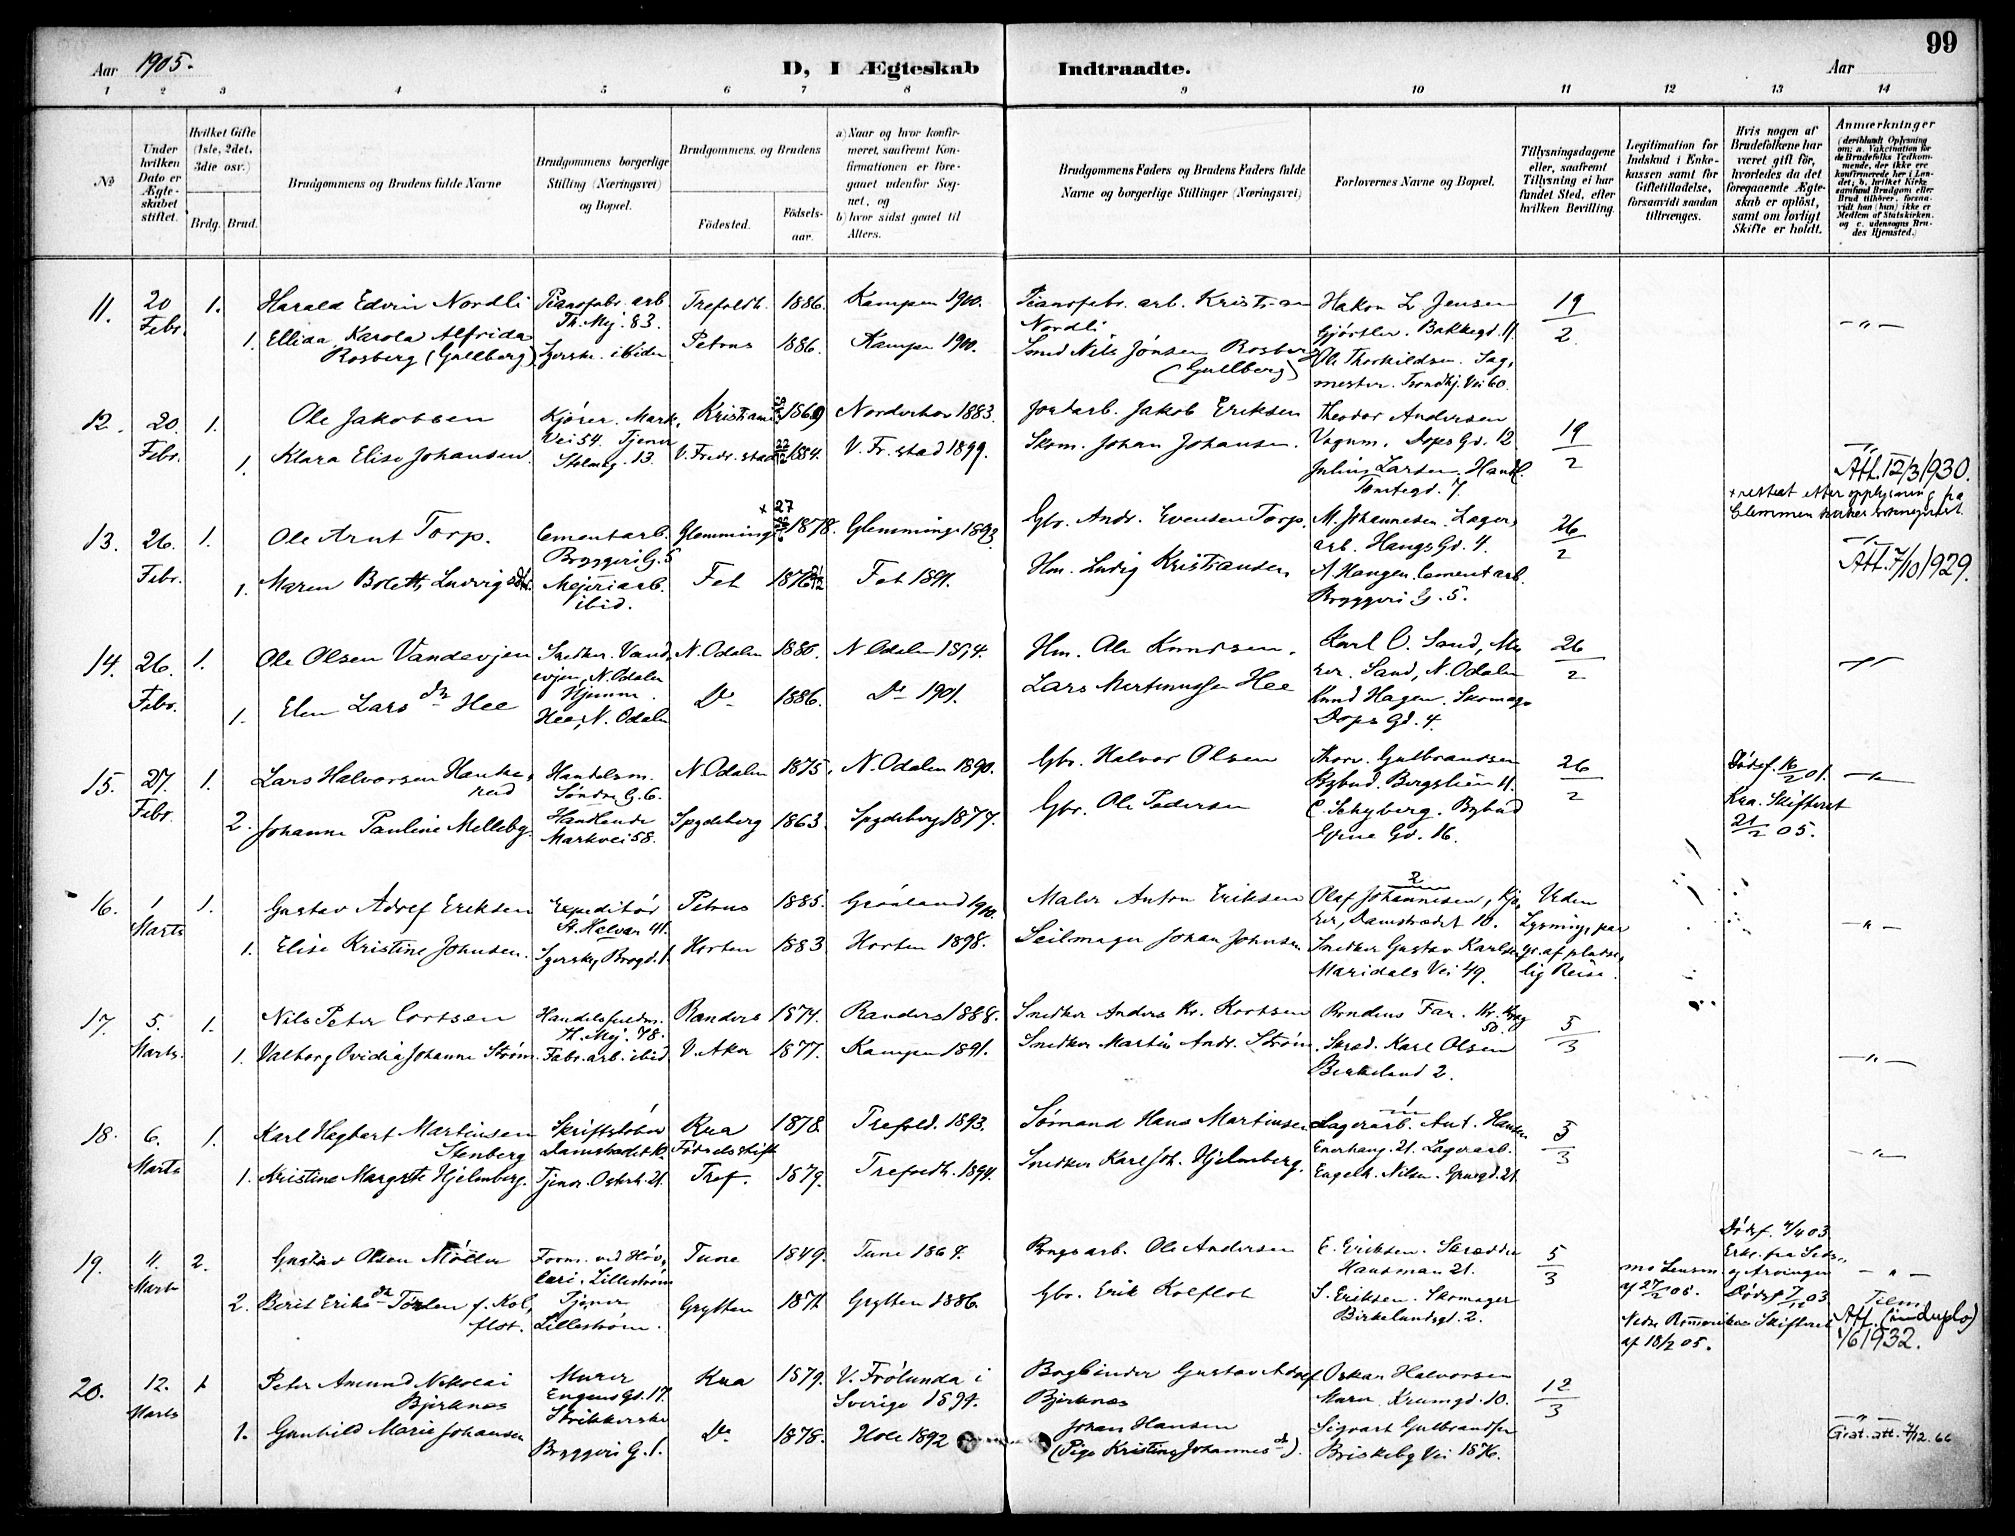 99
Aar 1905.
D, I Ægteskab Indtraadte.
Aar
1 2 3 4 5 6 7 8 9 10 11 12 13 14
No
Under hvilken Dato er Ægteskabet stiftet.
Hvilket Gifte (1ste, 2det, 3die osv.)
Brdg. Brud.
Brudgommens og Brudens fulde Navne
Brudgommens borgerlige Stilling (Næringsvei) og Bopæl.
Brudgommens og Brudens
Födested.
Födselsaar.
a) Naar og hvor konfirmeret, saafremt Konfirmationen er foregaaet udenfor Sognet, og
b) hvor sidst gaaet til Alters.
Brudgommens Faders og Brudens Faders fulde Navne og borgerlige Stillinger (Næringsvei)
Forlovernes Navne og Bopæl.
Tillysningsdagene eller, saafremt Tillysning ei har fundet Sted, efter hvilken Bevilling.
Legitimation for Indskud i Enkekassen samt for Giftetilladelse, forsaavidt saadan tiltrænges.
Hvis nogen af Brudefolkene har været gift för, hvorledes da det foregaaende Ægteskab er oplöst, samt om lovligt Skifte er holdt.
Anmærkninger
(deriblandt Oplysning om: a. Vakcination for de Brudefolks Vedkommende, der ikke ere konfirmerede her i Landet; b. hvilket Kirkesamfund Brudgom eller Brud tilhører, forsaavidt han (hun) ikke er Medlem af Statskirken, og c. udensogns Brudes Hjemsted.)
11. 20 Febr. 1. Harald Edvin Nordli Pianofabr. arb. Th. Mej. 83. Trefoldh. 1886. Kampen 1900. Pianofabr. arb. Kristian Nordli. Hakon L. Jensen Gjørtler. Bakkegd. 11. 19/2 -„-
1. Ellida Karola Alfrida Rosberg (Gullberg). Syerske ibiden Petrus 1886. Kampen 1900. Smed Nils Jönsen Rosberg (Gullberg) Ole Thorkildsen. Sagmester. Trondhj. Vei 60.
12. 20. Febr. 1. Ole Jakobsen Kjører. Mark Vei 54. Kristiania 1869 Norderhov 1883. Jordarb. Jakob Eriksen Theodor Andersen Vognm. Dops Gd. 12 19/2
1. Klara Elise Johansen. Tjener Stolmkg. 13. V. Fredr. stad 1884. V. Fr. stad 1899. Skom. Johan Johansen. Julius Larsen. Handl. Tomtegd. 7. -„- Att. 12/3 1930.
x rettet efter opplysning fra Glemmen
13. 26. Febr. 1. Ole Arnt Torp. Cementarb. Bryggeri G. 5 Glemminge x 27 1878. Glemminge 1893. Gbr. Andr. Evensen Torp M. Johannesen. Lagerarb. Haugs Gd. 4. 26/2 -„- Att. 7/10 1929.
1. Maren Bolette Ludvigsdtr. Mejeriarb. ibid. Fet 1876 Fet 1891. Hm. Ludvig Kristiansen A. Haugen. Cementarb. Bryggeri G. 5.
14. 26. Febr. 1. Ole Olsen Vandevjen Snedker. Vandevjen, N. Odalen N. Odalen 1880. N. Odalen 1894. Hm. Ole Knudsen. Karl O. Sand, Murer. Sand, N. Odalen 26/2 -„-
1. Elen Lars dtr Hee Hjemme. Hee, N. Odalen Do 1886. Do 1901. Lars Martinussen Hee Knud Hagen. Skomag. Dops Gd. 4.
15. 27. Febr. 1. Lars Halvorsen Haukerud Handelsm. Søndre G. 6. N. Odalen 1875. N. Odalen 1890. Gbr. Halvor Olsen Thorv. Gulbrandsen Bybud. Bergslien 11. 26/2 Dödsf. 16/2 01. -„-
2. Johanne Pauline Melleby. Handlende Markvei 58. Spydeberg 1863. Spydeberg 1877. Gbr. Ole Pedersen C. Schyberg. Bybud Grüne Gd. 16. Kra. Skifteret 21/2 05.
16. 1 Marts 1. Gustav Adolf Eriksen Expeditör St. Halvar. 41. Petrus 1885. Grönland 1900. Maler Anton Eriksen Olaf Johannesen, Kjører, Damstrædet 10. Uden Lysning paa Gr. af pludselig Reise. -„-
1. Elise Kristine Johnsen. Syerske, Brogd. 1. Horten 1883 Horten 1898. Seilmager Johan Johnsen Snedker Gustav Karlsen Maridals Vei 49.
17. 5. Marts. 1. Nils Peter Cortsen Handelsfuldm. Th. Mej. 78. Randers 1874. Randers 1888. Snedker Anders Kr. Kortsen Brudens Far. 5/3
1. Valborg Ovidia Johanne Ström Fabr. arb. ibid. V. Aker 1877. Kampen 1891. Snedker Martin Andr. Ström. Skræd. Karl Olsen Birkelund 2. -„-
18. 6. Marts 1. Karl Hagbart Martinsen Stenberg Skriftstöber Damstrædet 10. Kra Fødselsstift. 1878. Trefold. 1893. Sömand Hans Martinsen Lagerarb. Ant. Hansen Enerhaug. 21. 5/3 -„-
1. Kristine Margrete Hjelmberg. Tjener. Osterh. 21. Tref. 1879. Trefoldh. 1894. Snedker Karl Joh. Hjelmberg. Lagerarb. Engelh. Nilsen. Grueg d. 21
19. 11. Marts 2. Gustav Olsen Möller Form. ved Høvleri. Lillestrøm Tune 1849. Tune 1864. Brugsarb. Ole Andersen E. Eriksen. Skrædder Hausman 21. 5/3 Dödsf. 4/4 03.
2. Berit Eriks dtr Torlen f. Kolflot. Tjener Lillestrøm. Grytten 1871 Grytten 1886. Gbr. Erik Kolflot S. Eriksen. Skomager Birkelundsgd. 2. af 27/2 05. Dödsf. 7/12 03 Nedre Romerikes Skifteret af 18/2 05. Att. (induplo) 1/6 1932.
20. 12. Marts 1 Peter Amund Nikolai Bjerknæs Murer Engens Gd. 17. Kra 1879. V. Frölunda i Sverige 1894. Bogbinder Gustav Adolf Bjerknæs Oskar Halvorsen Murer. Krumgd. 10. 12/3
1. Gunhild Marie Johansen Strikkerske Bryggeri G. 1. Do 1878. Hole 1892 Johan Hansen (Pige Kristine Johannesdtr). Sigvart Gulbrandsen Briskeby Vei 18 K. -„- Grat. att. 7/12.66